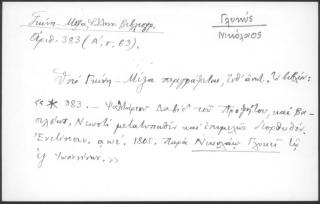 Γκίνη - Μέξα Ἑλλην. Βιβλιογρ.
Ἀριθ. 383 (Α', σ. 63).
Γλυκύς
Νικόλαος
Ὑπὸ Γκίνη - Μέξα περιγράφεται, ὑπ' ἀριθ. τὸ βιβλίον:
«* 383. — Ψαλτήριον Δαβὶδ τοῦ Προφήτου, καὶ Βα-
σιλέως, Νεωστὶ μετατυπωθὲν καὶ ἐπιμελῶς διορθωθέν.
Ἐνετίησιν. αωε'. 1805. Παρὰ Νικολάῳ Γλυκεῖ τῷ
ἐξ Ἰωαννίνων.»